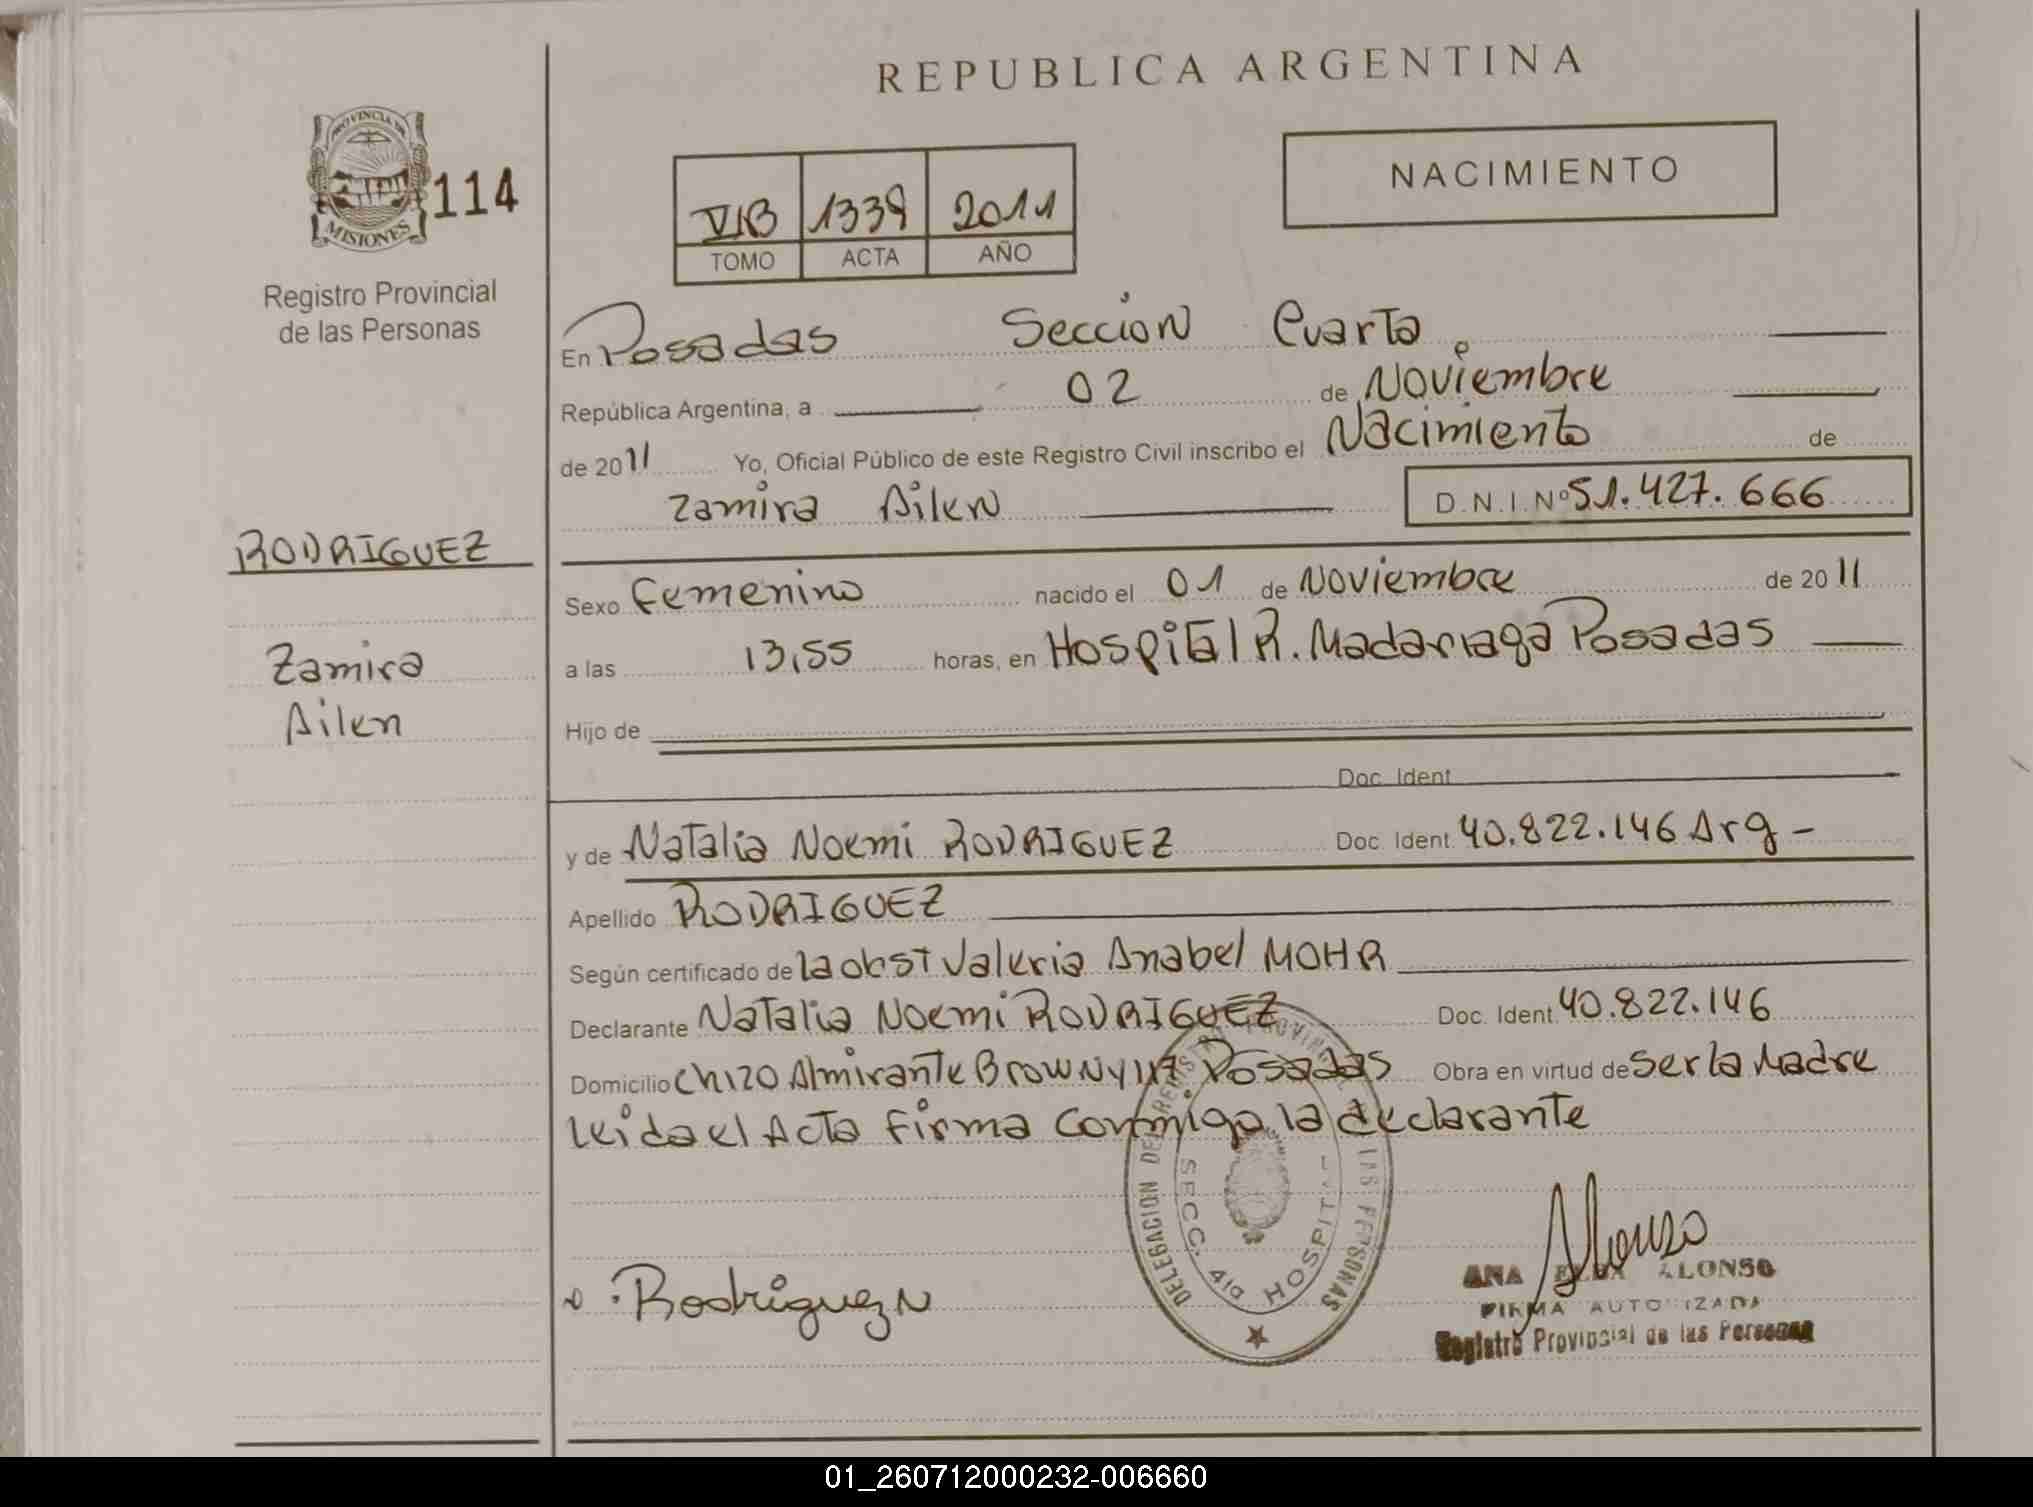 REPUBLICA ARGENTINA
PROVINCIA DE
MISIONES
114
Registro Provincial
de las Personas
NACIMIENTO
VIB 1339 2011
TOMO ACTA AÑO
En Posadas Seccion Cuarta
República Argentina, a 02 de Noviembre
de 2011 Yo, Oficial Público de este Registro Civil inscribo el Nacimiento de
Zamira Ailen D.N.I. Nº 51.427.666
RODRIGUEZ
Zamira
Ailen
Sexo Femenino nacido el 01 de Noviembre de 2011
a las 13,55 horas, en Hospital R. Madariaga Posadas
Hijo de
Doc. Ident
y de Natalia Noemi RODRIGUEZ Doc. Ident. 40.822.146 Arg -
Apellido RODRIGUEZ
Según certificado de la obst Valeria Anabel MOHR
Declarante Natalia Noemi RODRIGUEZ Doc. Ident. 40.822.146
Domicilio Ch120 Almirante Brown y 117 Posadas Obra en virtud de ser la Madre
leida el Acta firma conmigo la declarante
DELEGACION DEL REGISTRO PROVINCIAL DE LAS PERSONAS
SECC. 4ta HOSPITAL
Rodriguez N
Alonso
ANA ALONSO
FIRMA AUTORIZADA
Registro Provincial de las Personas
01_260712000232-006660